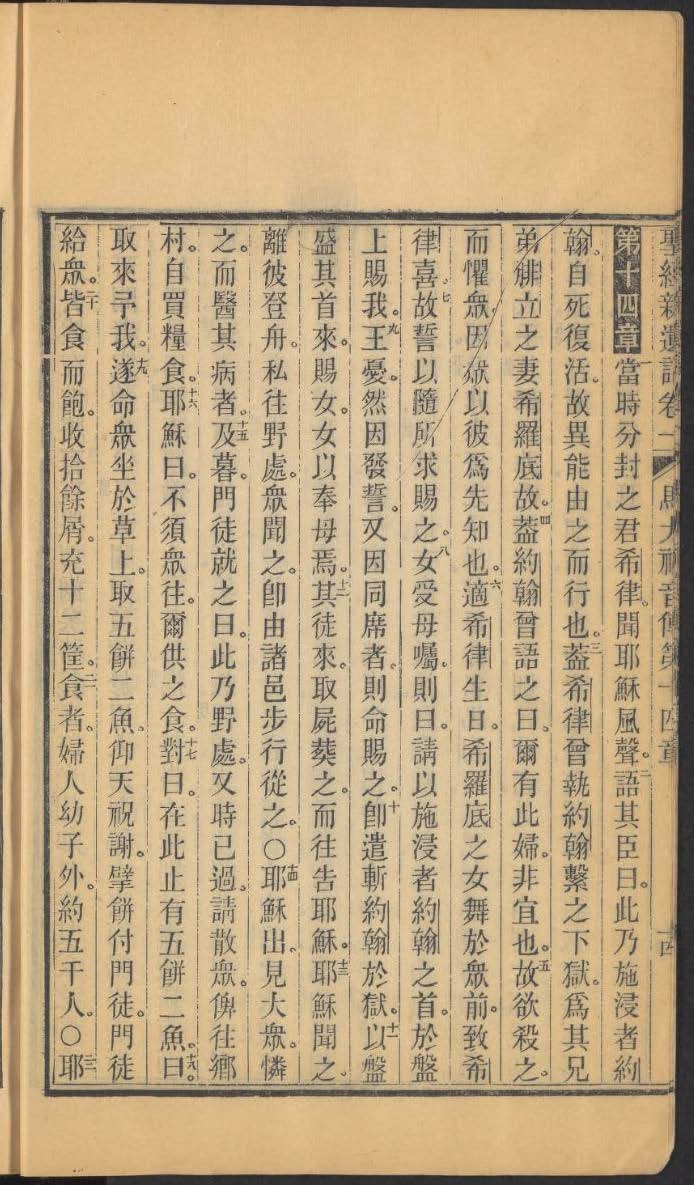 聖經新遺詔卷一 馬太福音傳第十四章 十四
第十四章一當時分封之君希律。聞耶穌風聲。二語其臣曰。此乃施浸者約
翰。自死復活。故異能由之而行也。三蓋希律曾執約翰繫之下獄。爲其兄
弟腓立之妻希羅底故。四蓋約翰曾語之曰。爾有此婦。非宜也。五故欲殺之。
而懼衆。因衆以彼爲先知也。六適希律生日。希羅底之女舞於衆前。致希
律喜。七故誓以隨所求賜之。八女受母囑。則曰。請以施浸者約翰之首。於盤
上賜我。九王憂。然因發誓。又因同席者。則命賜之。十卽遣斬約翰於獄。十一以盤
盛其首來。賜女。女以奉母焉。十二其徒來。取屍葬之。而往告耶穌。十三耶穌聞之。
離彼登舟。私往野處。衆聞之。卽由諸邑步行從之。〇十四耶穌出。見大衆。憐
之。而醫其病者。十五及暮。門徒就之曰。此乃野處。又時已過。請散衆。俾往鄉
村。自買糧食。十六耶穌曰。不須衆往。爾供之食。十七對曰。在此止有五餅二魚。十八曰。
取來予我。十九遂命衆坐於草上。取五餅二魚。仰天祝謝。擘餅付門徒。門徒
給衆。二十皆食而飽。收拾餘屑。充十二筐。二一食者。婦人幼子外。約五千人。〇二二耶